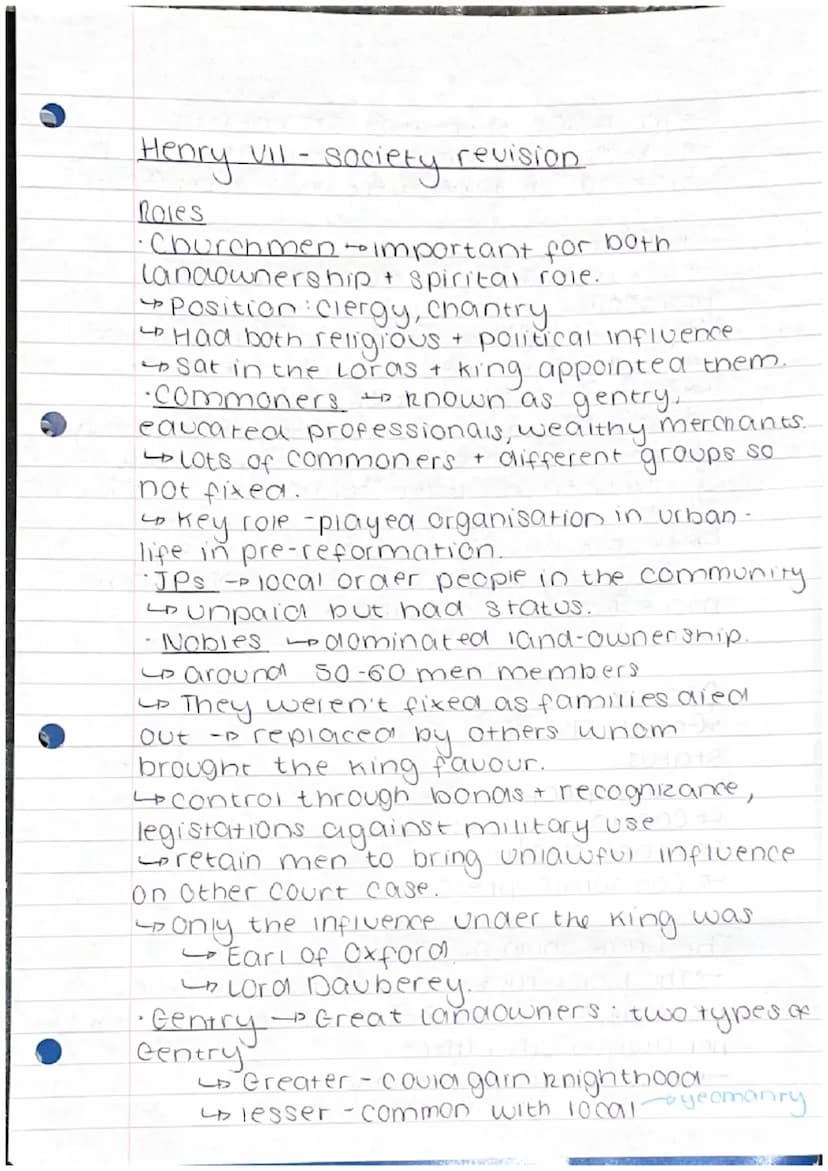 Henry VII - society revision
Roles
· Churchmen → important for both
landownership + spirital role.
↳ Position : clergy, chantry
↳ Had both religious + political influence
↳ sat in the Lords + king appointed them.
· Commoners ↳ known as gentry,
educated professionals, wealthy merchants.
↳ lots of commoners + different groups so
not fixed.
↳ key role - played organisation in urban -
life in pre-reformation.
· JPs → local order people in the community
↳ unpaid but had status.
· Nobles ↳ dominated land-ownership.
↳ around 50-60 men members
↳ They weren't fixed as families died
out → replaced by others whom
brought the king favour.
↳ control through bonds + recognizance,
legistrations against military use
↳ retain men to bring unlawful influence
on other court case.
↳ Only the influence under the king was
↳ Earl of Oxford
↳ Lord Dauberey.
· Gentry → Great landowners : two types of
Gentry
↳ Greater - could gain knighthood
↳ lesser - common with local → yeomanry